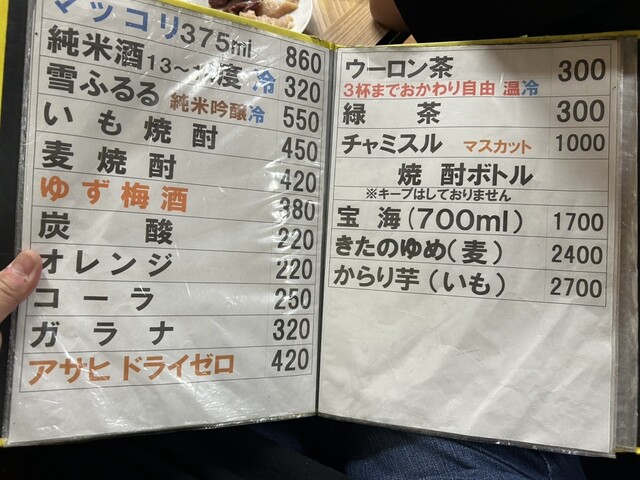 マッコリ375ml 860
純米酒 度 冷 320
雪ふるる 純米吟醸冷 550
いも焼酎 450
麦焼酎 420
ゆず梅酒 380
炭酸 220
オレンジ 220
コーラ 250
ガラナ 320
アサヒ ドライゼロ 420
ウーロン茶 300
3杯までおかわり自由 温冷
緑茶 300
チャミスル マスカット 1000
焼酎ボトル
※キープはしておりません
宝海(700ml) 1700
きたのゆめ(麦) 2400
からり芋(いも) 2700